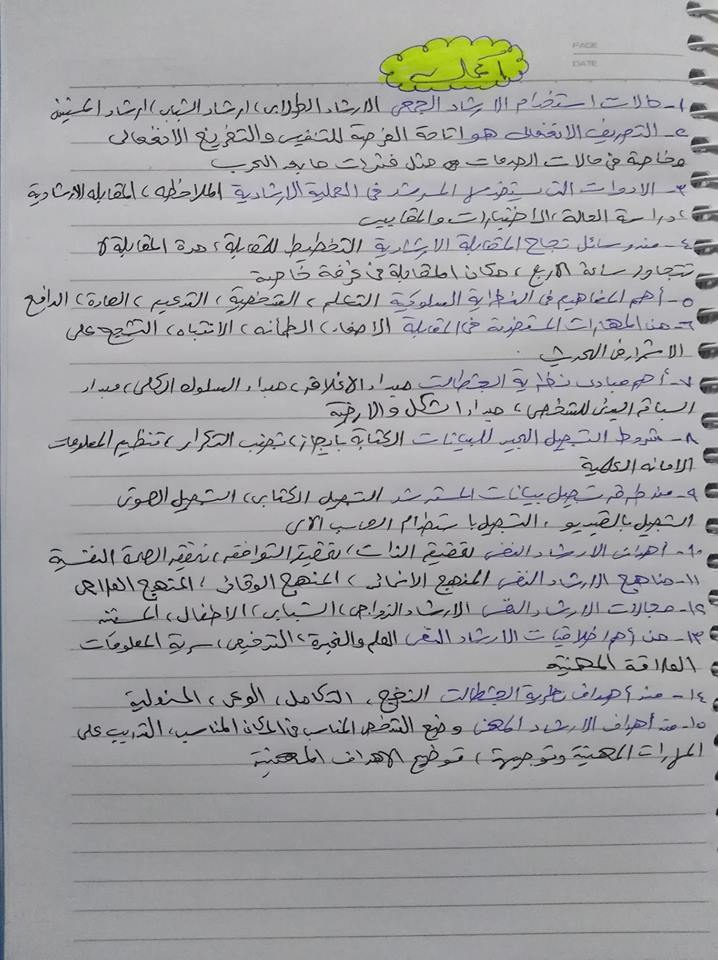 PAGE
DATE
اكمال
١- حالات استخدام الارشاد الجمعي الارشاد الطلابي، ارشاد الشباب، ارشاد المسنين
٢- التصريف الانفعالي هو اتاحة الفرصة للتنفيس والتفريغ الانفعالي
وخاصة في حالات الصدمات مثل فترات ما بعد الحرب
٣- الادوات التي يستخدمها المرشد في العملية الارشادية الملاحظه، المقابله الارشادية
، دراسة الحالة، الاختبارات والمقاييس
٤- من وسائل نجاح المقابلة الارشادية التخطيط للمقابلة، مدة المقابلة لا
تتجاوز ساعة الاربع، مكان المقابلة في غرفة خاصة
٥- أهم المفاهيم في النظرية السلوكية التعلم، الشخصية، التدعيم، العادة، الدافع
٦- من المهارات المستخدمة في المقابلة الاصغاء، الطمأنه، الانتباه، التشجيع على
الاستمرار في الحديث.
٧- أهم مبادئ نظرية الجشطالت مبداء الاغلاق، مبداء السلوك الكلي، مبداء
السياق البيئي للشخص، مبداء الشكل والارضية
٨- شروط التسجيل الجيد للبيانات الكتابة بايجاز، تجنب التكرار، تنظيم المعلومات
الامانه العلمية
٩- من طرق تسجيل بيانات المسترشد التسجيل الكتابي، التسجيل الصوتي
التسجيل بالفيديو، التسجيل باستخدام الحاسب الالي
١٠- أهداف الارشاد النفسي تحقيق الذات، تحقيق التوافق، تحقيق الصحة النفسية
١١- مناهج الارشاد النفسي المنهج الانمائي، المنهج الوقائي، المنهج العلاجي
١٢- مجالات الارشاد النفسي الارشاد الزواجي، الشباب، الاطفال، المسنين
١٣- من أهم اخلاقيات الارشاد النفسي العلم والخبرة، الترخيص، سرية المعلومات
العلاقة المهنية
١٤- من أهداف نظرية الجشطالت النضج، التكامل، الوعي، المسؤلية
١٥- من أهداف الارشاد المهني وضع الشخص المناسب في المكان المناسب، التدريب على
المهارات المهنية وتوجيهة، توضيح الاهداف المهنية